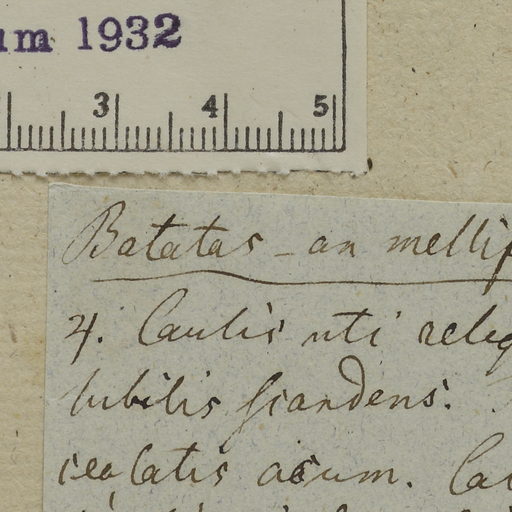 um 1932
3 4 5
Batatas - an mellif
4. Caulis uti reliq
lubilis scandens.
ceolatis acum. Ca